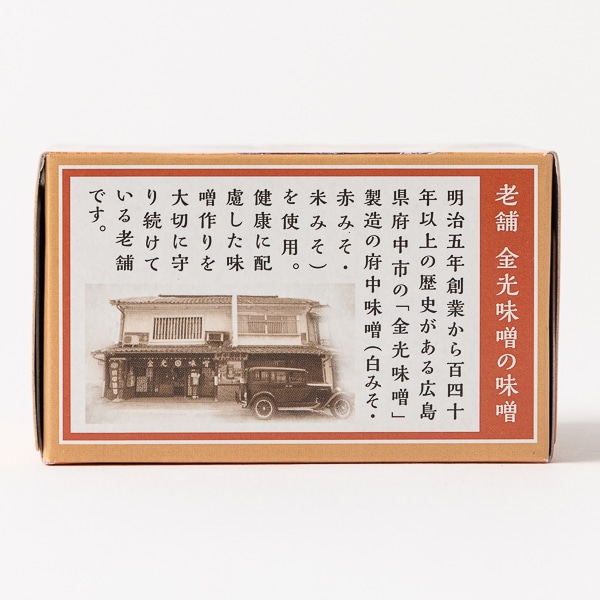 老舗 金光味噌の味噌
明治五年創業から百四十
年以上の歴史がある広島
県府中市の「金光味噌」
製造の府中味噌（白みそ・
赤みそ・
米みそ）
を使用。
健康に配
慮した味
噌作りを
大切に守
り続けて
いる老舗
です。
金光味噌